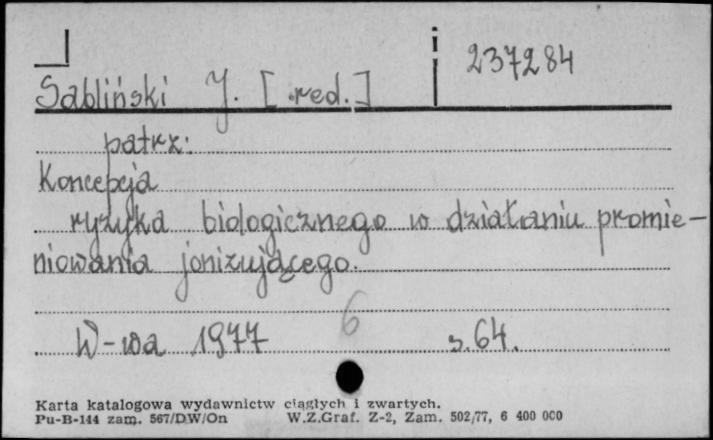 237284
Sabliński J. [red.]
patrz:
Koncepcja
ryzyka biologicznego w działaniu promie-
niowania jonizującego.
6
W-wa 1977 s. 64.
Karta katalogowa wydawnictw ciągłych i zwartych.
Pu-B-144 zam. 567/DW/On W.Z.Graf. Z-2, Zam. 502/77, 6 400 000